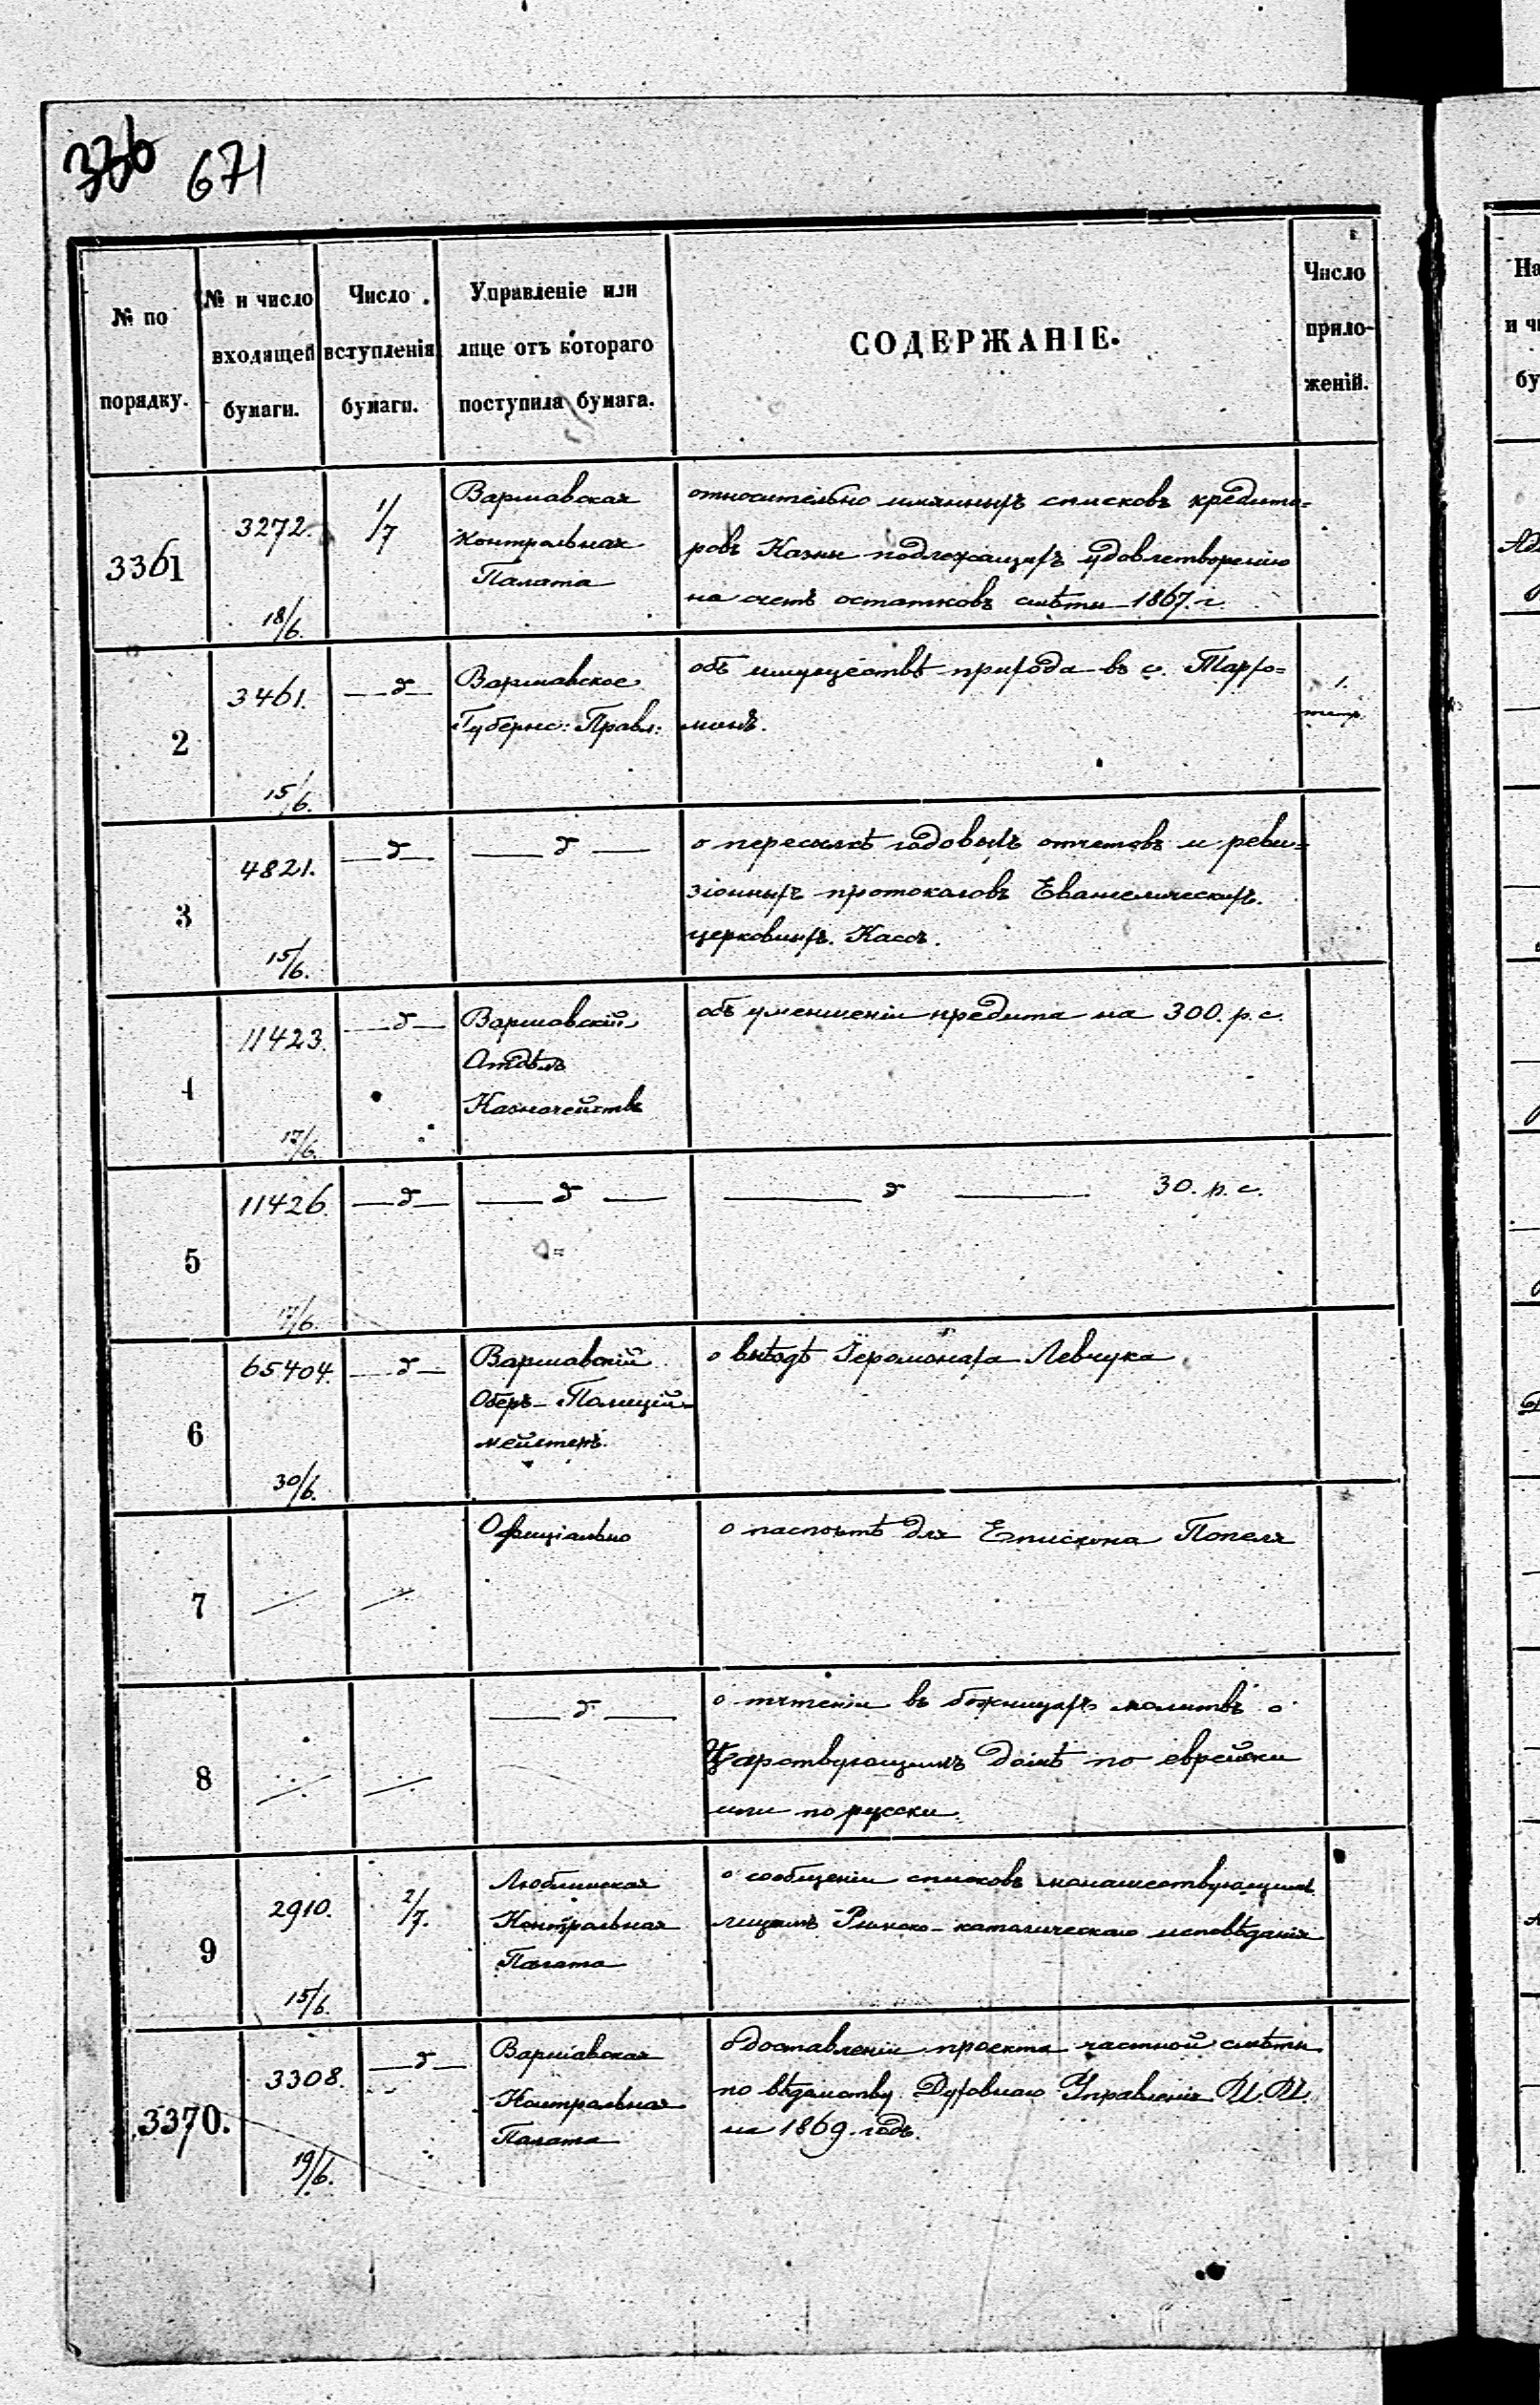 336 671
№ по порядку.
№ и число входящей бумаги.
Число вступленія бумаги.
Управленіе или лице отъ котораго поступила бумага.
СОДЕРЖАНІЕ.
Число прило-
женій.
3361
3272.
18/6.
1/7
Варшавская
Контрольная
Палата
относительно имянныхъ списковъ кредито=
ровъ Казны подлежащихъ удовлетворенію
на счетъ остатковъ смѣты 1867. г.
2
3461.
15/6.
—д—
Варшавское
Губернс: Правл:
объ имуществѣ прихода въ с. Тархо=
минъ.
1.
3
4821.
15/6.
—д—
— д —
о пересылкѣ годовыхъ отчетовъ и реви=
зіонныхъ протокаловъ Евангелическихъ.
церковныхъ. Кассъ.
4
11423.
17/6.
—д—
Варшавскій
Отдѣлъ
Казначействъ
объ уменшеніи кредита на 300. р. с.
5
11426.
17/6.
—д—
— д —
— д — 30. р. с.
6
65404.
30/6.
—д—
Варшавскій
Оберъ-Полицій-
мейстеръ.
о Іеромонаха Левчука
7
Офиціально
о паспортѣ для Епископа Попеля
8
— д —
о чтеніи въ божницахъ молитвъ о
Царствующимъ домѣ по еврейски
или по русски.
9
2910.
15/6.
2/7.
Люблинская
Контрольная
Палата
о сообщеніи списковъ монашествующимъ
лицамъ Римско-католическаго исповѣданія
3370.
3308.
19/6.
—д—
Варшавская
Контрольная
Палата
о доставленіи проекта частной смѣты
по вѣдомству Духовнаго Управленія И. И.
на 1869. годъ.